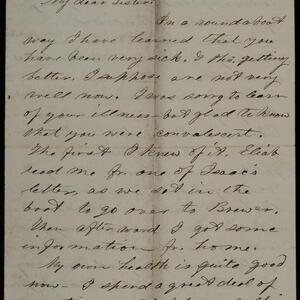 My dear Sister
In a round a boat
way I have learned that you
have been very sick. & tho. getting
better. I suppose are not very
well now. I was sorry to learn
of your illness - but glad to know
that you were convalescent.
The first I knew of it. Eliab
read me fr. one of Isaac's
letters, as we sat in the
boat to go over to Brewer.
Then afterward I got some
information fr. home.
My own health is quite good
now - I spend a great deal of